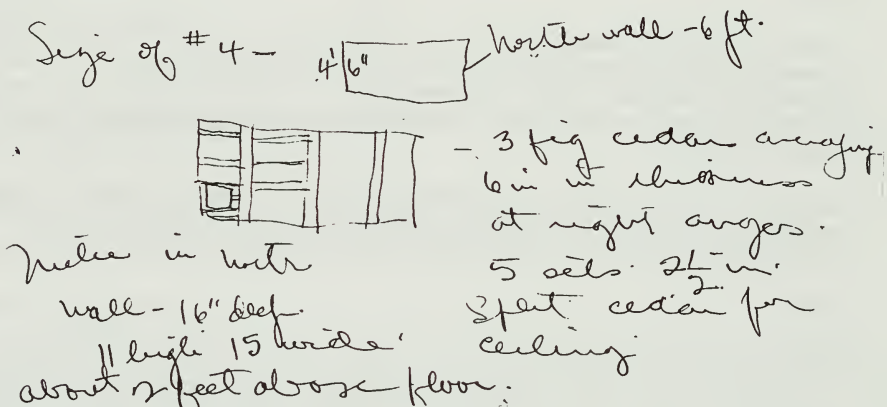 Size of #4 - 4' 6" north wall - 6 ft.
- 3 big cedar averaging
6 in in thickness
at right angers.
5 sets. 2 1/2 in.
Split cedar for
ceiling
in north
wall - 16" deep.
11 high 15 wide.
about 2 feet above floor.